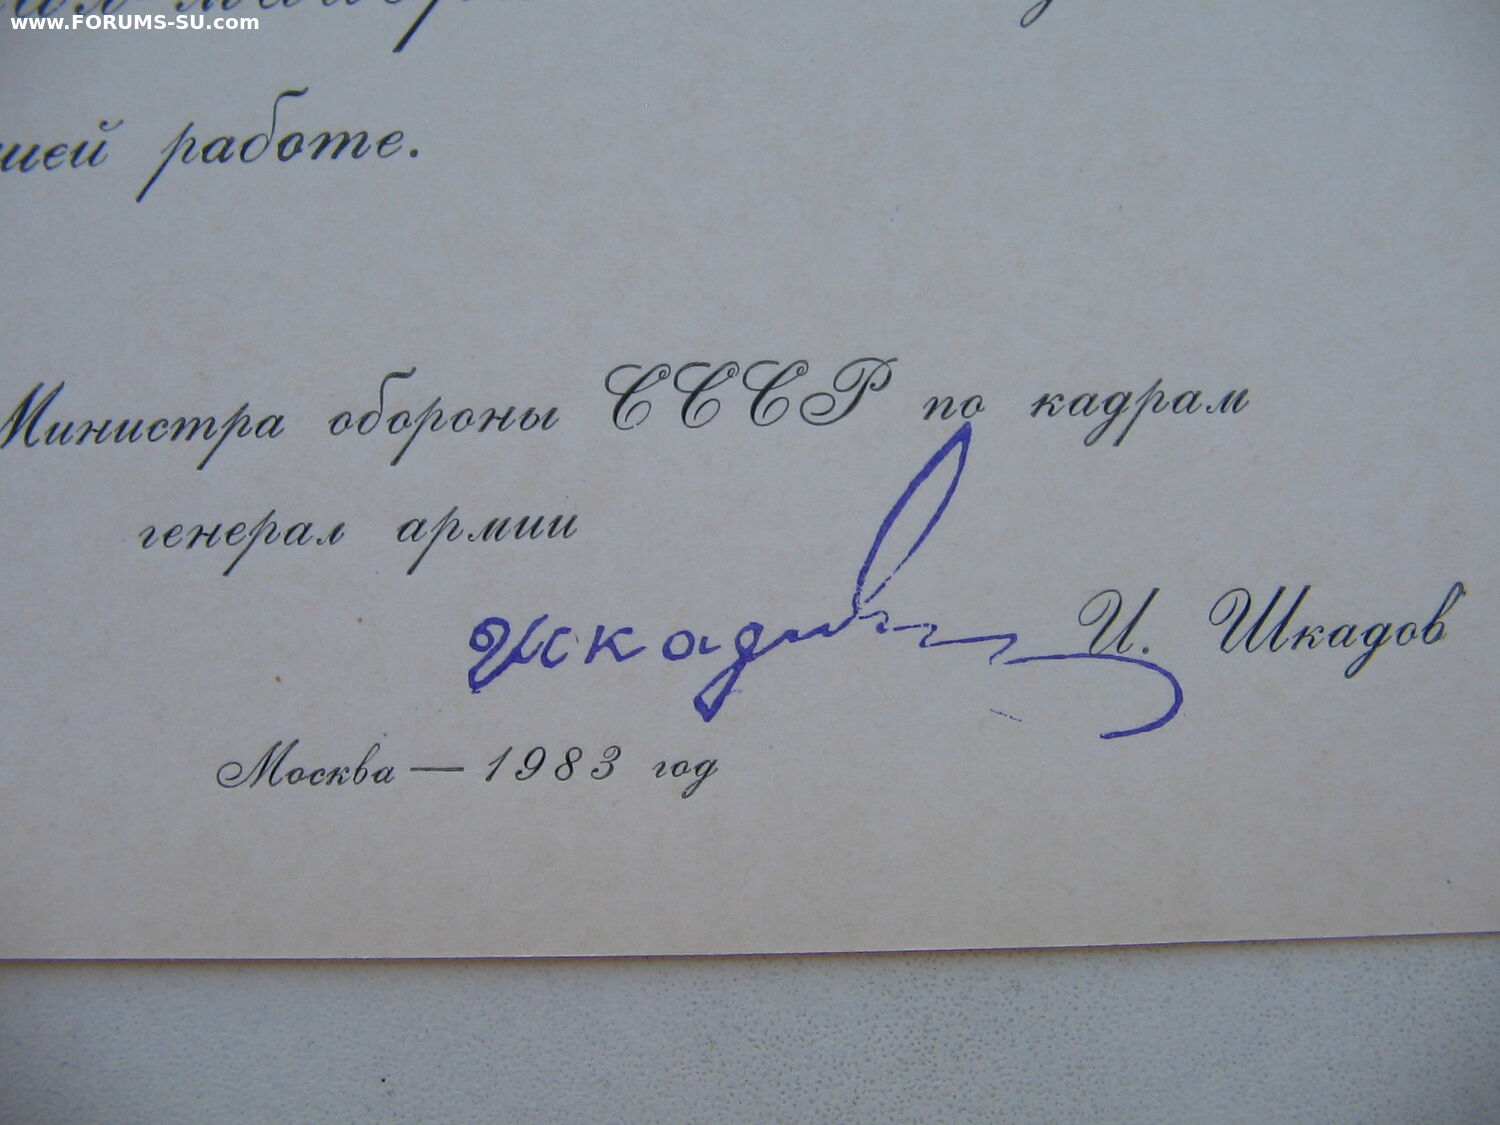 www.FORUMS-SU.com
шей работе.
Министра обороны СССР по кадрам
генерал армии
И. Шкадов
Москва — 1983 год